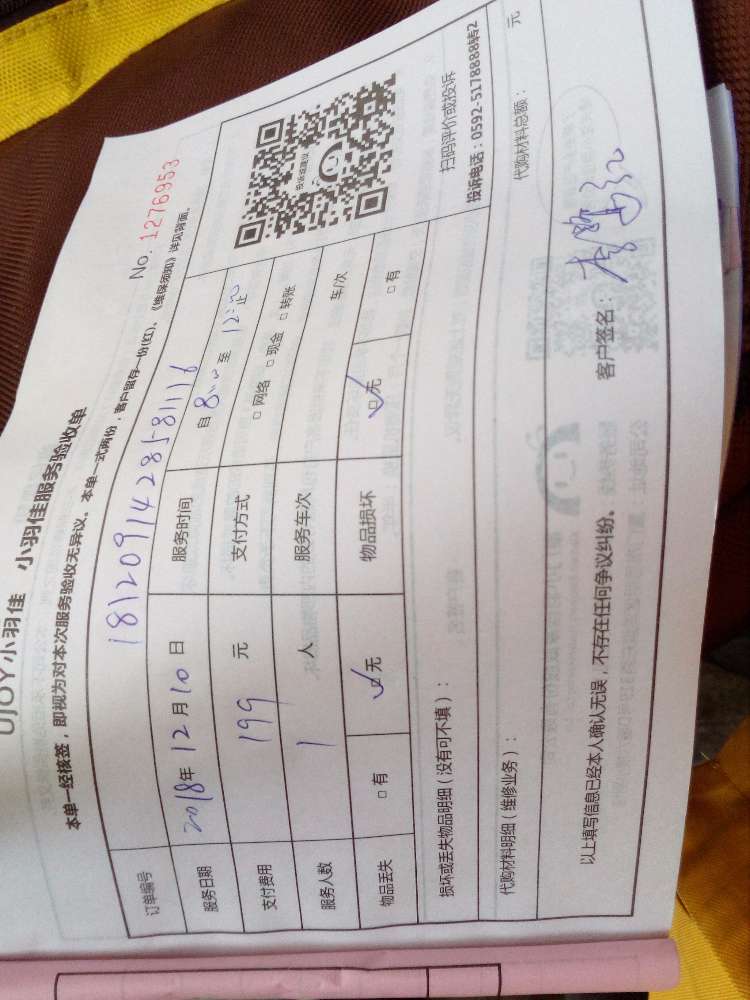 UJOY小羽佳 小羽佳服务验收单
No. 1276953
本单一经核签，即视为对本次服务验收无异议。本单一式两份，客户留存一份(红)，《维保须知》详见背面。
订单编号 181209142858111 6
服务日期 2018年12月10日 服务时间 自8:00至12:00止
支付费用 199 元 支付方式 □网络 □现金 □转账
服务人数 1 人 服务车次 车/次
物品丢失 □有 ☑无 物品损坏 ☑无 □有
投诉或建议
扫码评价或投诉
投诉电话：0592-5178888转2
损坏或丢失物品明细（没有可不填）：
代购材料明细（维修业务）： 代购材料总额： 元
以上填写信息已经本人确认无误，不存在任何争议纠纷。 客户签名：